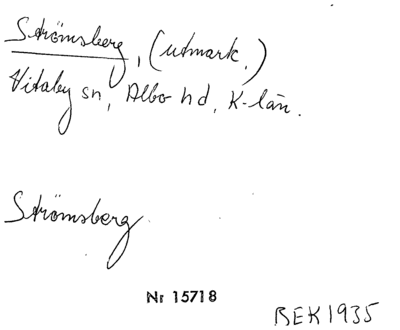 Strömsberg, (utmark.)
Vitaby sn, Albo hd, K-län.
Strömsberg
Nr 15718
BEK1935